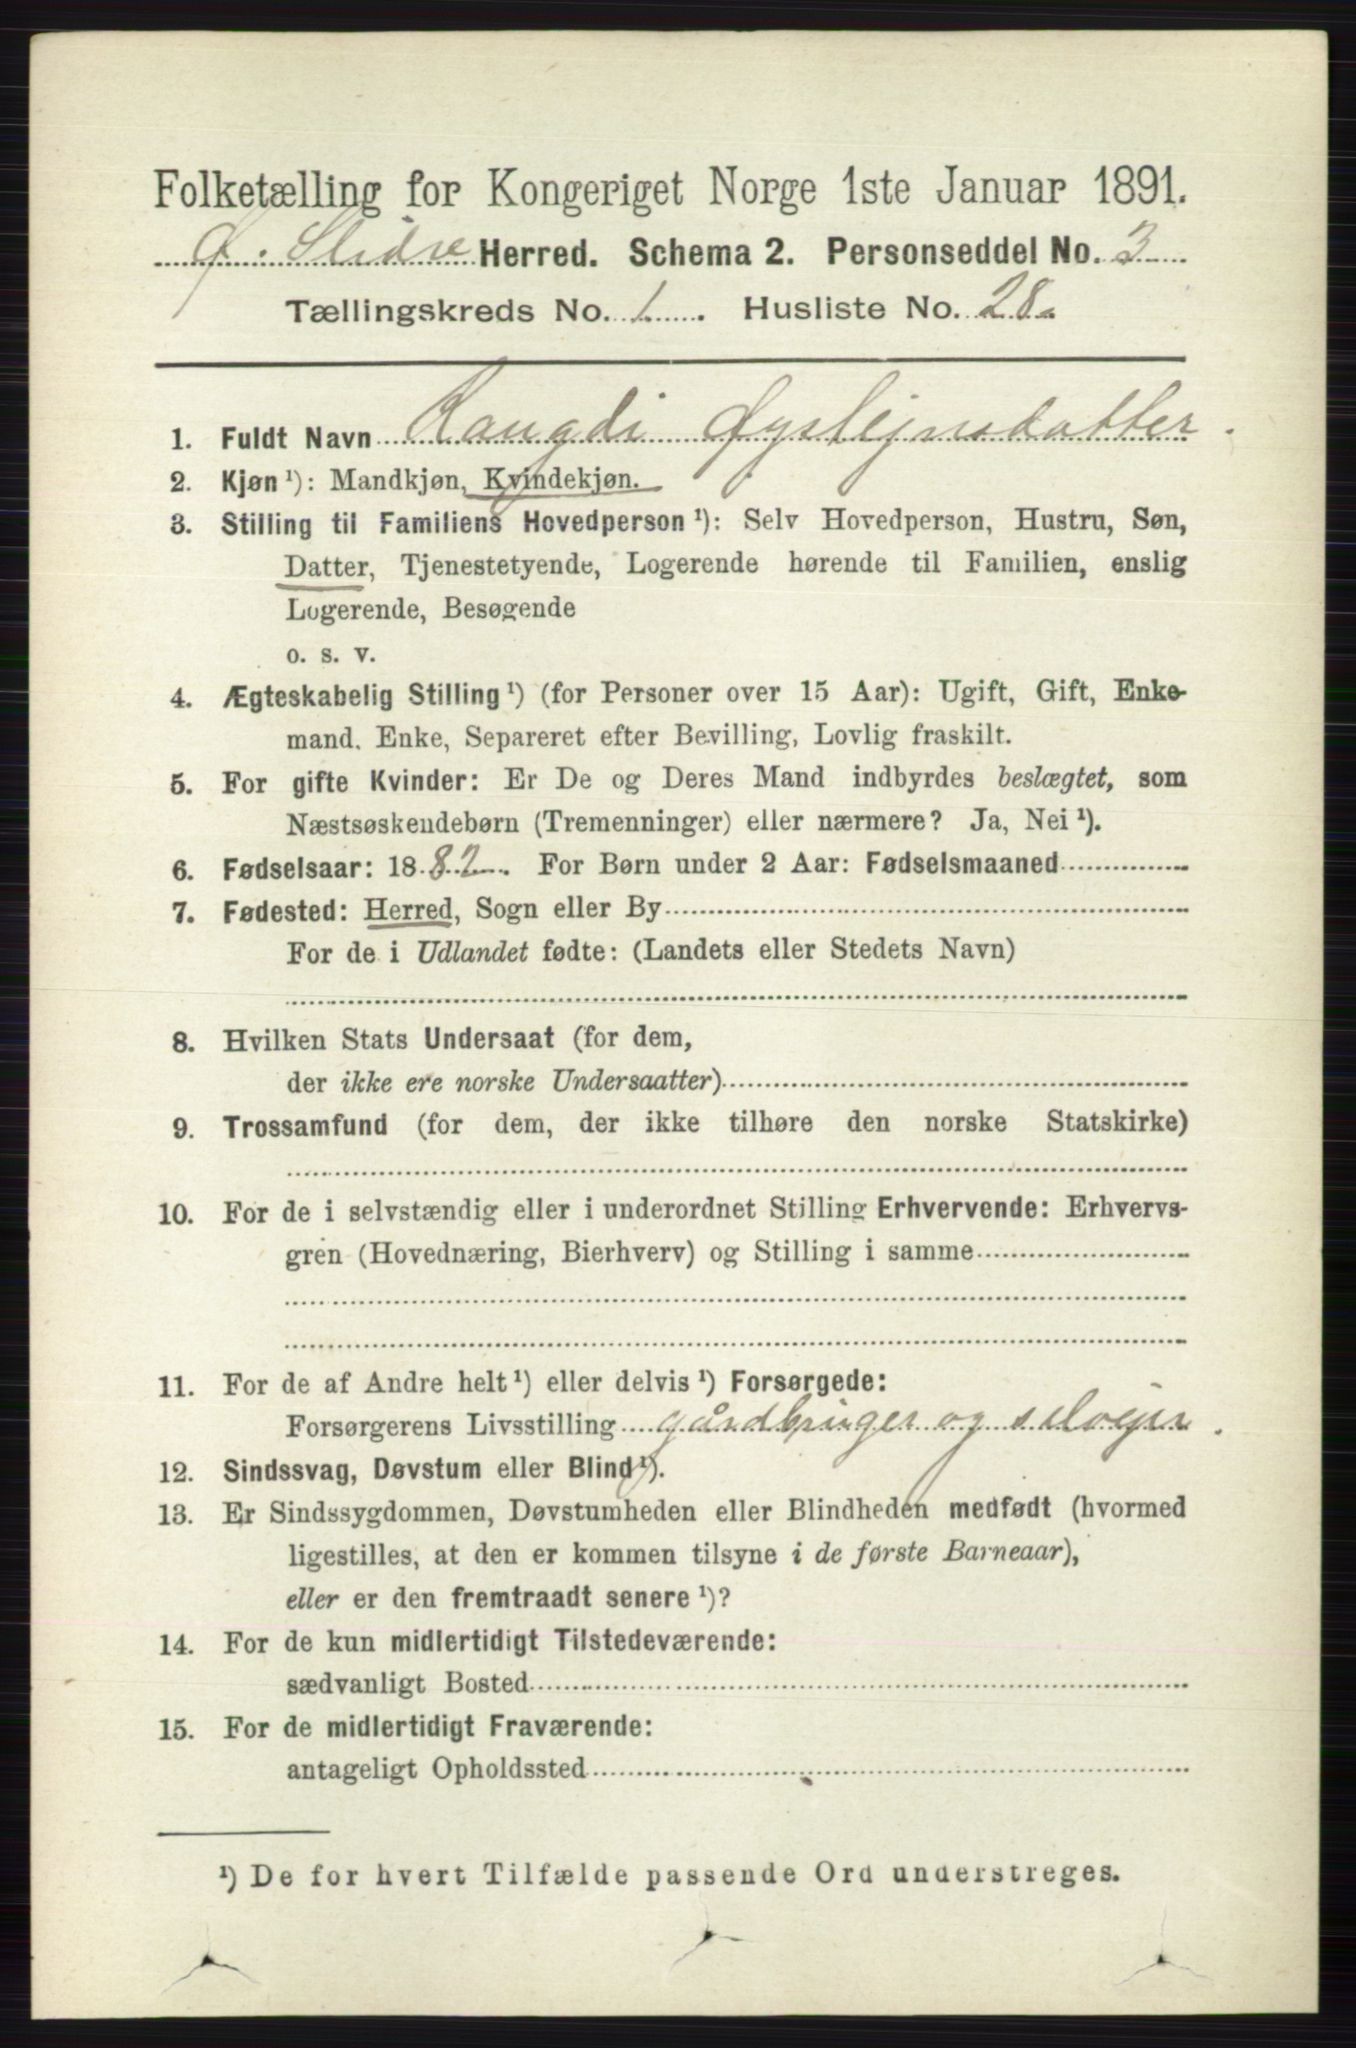 Folketælling for Kongeriget Norge 1ste Januar 1891.
Ø. Slidre Herred. Schema 2. Personseddel No. 3
Tællingskreds No. 1. Husliste No. 28.
1. Fuldt Navn Raugdi Øystejnsdatter.
2. Kjøn ¹): Mandkjøn, Kvindekjøn.
3. Stilling til Familiens Hovedperson ¹): Selv Hovedperson, Hustru, Søn,
Datter, Tjenestetyende, Logerende hørende til Familien, enslig
Logerende, Besøgende
o. s. v.
4. Ægteskabelig Stilling ¹) (for Personer over 15 Aar): Ugift, Gift, Enke-
mand, Enke, Separeret efter Bevilling, Lovlig fraskilt.
5. For gifte Kvinder: Er De og Deres Mand indbyrdes beslægtet, som
Næstsøskendebørn (Tremenninger) eller nærmere? Ja, Nei ¹).
6. Fødselsaar: 1882. For Børn under 2 Aar: Fødselsmaaned
7. Fødested: Herred, Sogn eller By
For de i Udlandet fødte: (Landets eller Stedets Navn)
8. Hvilken Stats Undersaat (for dem,
der ikke ere norske Undersaatter)
9. Trossamfund (for dem, der ikke tilhøre den norske Statskirke)
10. For de i selvstændig eller i underordnet Stilling Erhvervende: Erhvervs-
gren (Hovednæring, Bierhverv) og Stilling i samme
11. For de af Andre helt ¹) eller delvis ¹) Forsørgede:
Forsørgerens Livsstilling gårdbruger og selvejer.
12. Sindssvag, Døvstum eller Blind ¹).
13. Er Sindssygdommen, Døvstumheden eller Blindheden medfødt (hvormed
ligestilles, at den er kommen tilsyne i de første Barneaar),
eller er den fremtraadt senere ¹)?
14. For de kun midlertidigt Tilstedeværende:
sædvanligt Bosted
15. For de midlertidigt Fraværende:
antageligt Opholdssted
¹) De for hvert Tilfælde passende Ord understreges.